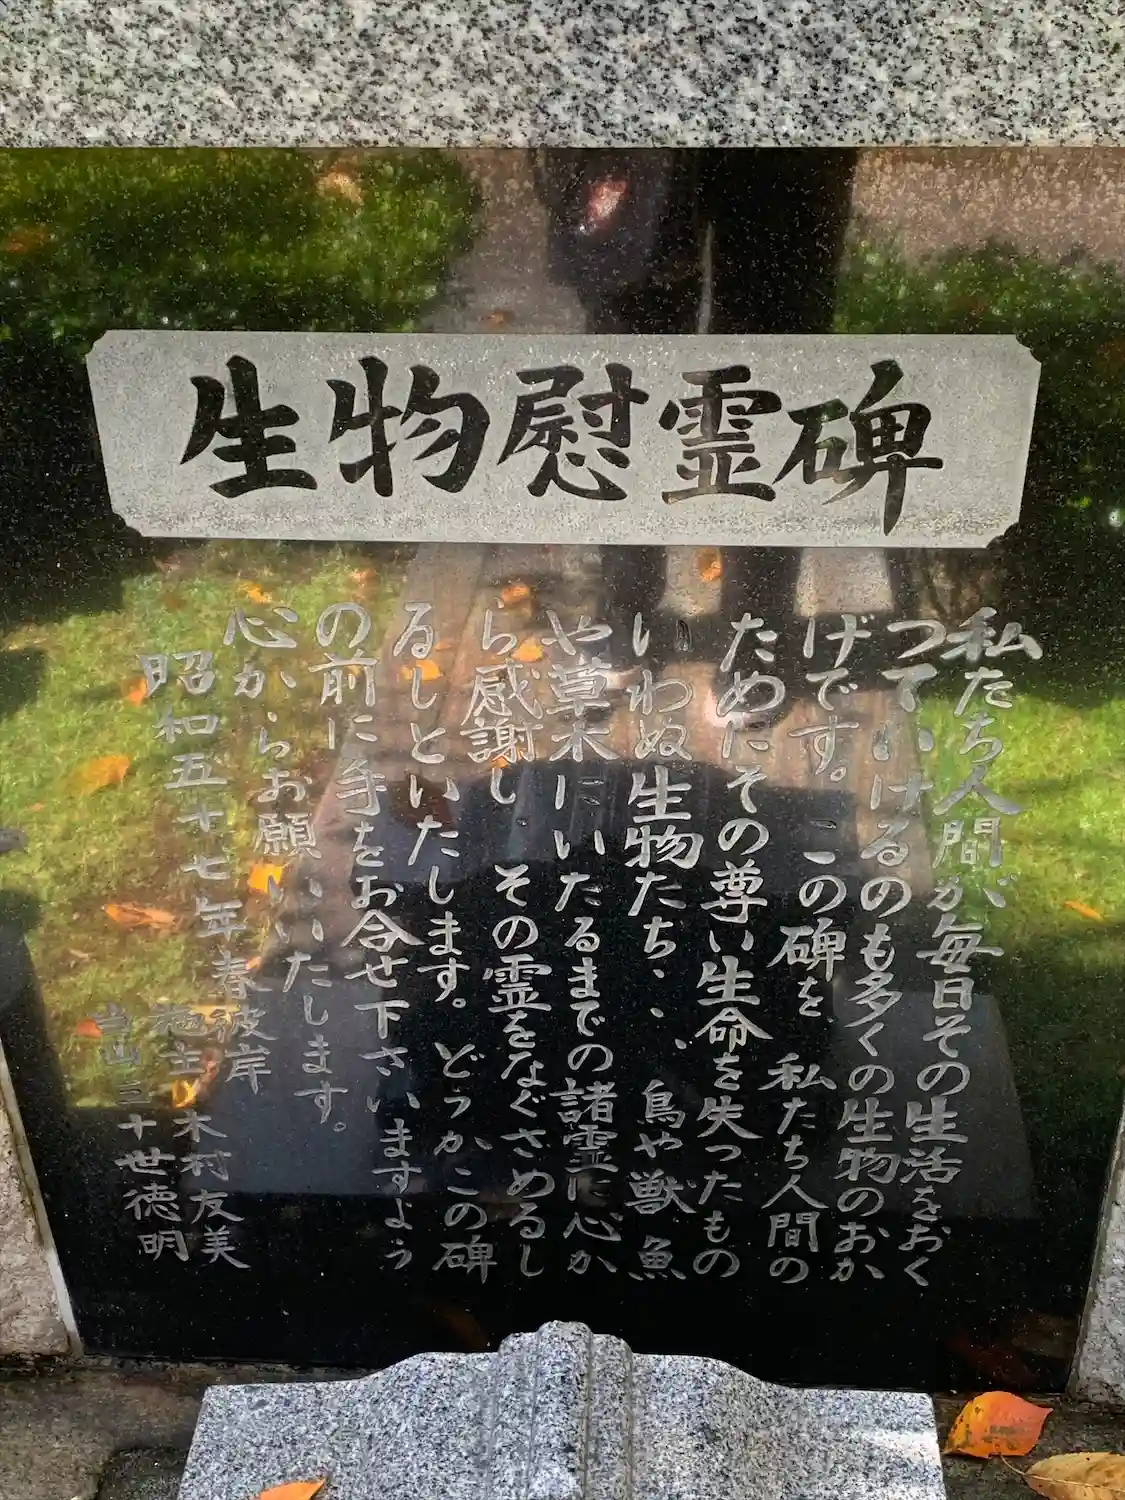 生物慰霊碑
私たち人間が毎日その生活をおく
っていけるのも多くの生物のおか
げです。この碑を 私たち人間の
ためにその尊い生命を失ったもの
いわぬ生物たち・・・鳥や獣 魚
や草木にいたるまでの諸霊に心か
ら感謝し その霊をなぐさめるし
るしといたします。どうかこの碑
の前に手をお合せ下さいますよう
心からお願いいたします。
昭和五十七年春彼岸
施主 木村友美
当山三十世徳明